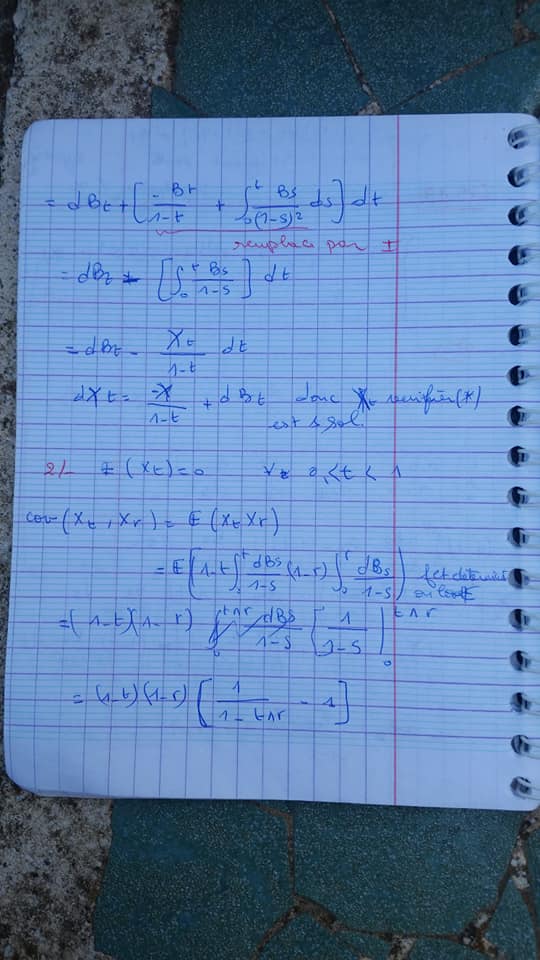 = dBt + [ -Bt/1-t + ∫₀ᵗ Bs/(1-s)² ds ] dt
remplacé par I
= dBt - [ ∫₀ᵗ Bs/1-s ] dt
= dBt - Xt/1-t dt
dXt = -X/1-t + dBt donc Xt vérifie (*)
est 1 sol.
2/- E(Xt) = 0 ∀ 0 < t < 1
cov(Xt, Xr) = E(XtXr)
= E( 1-t ∫₀ᵗ dBs/1-s (1-r) ∫₀ʳ dBs/1-s )
= (1-t)(1-r) [ 1/1-s ]₀^{t∧r}
= (1-t)(1-r) [ 1/1-t∧r - 1 ]